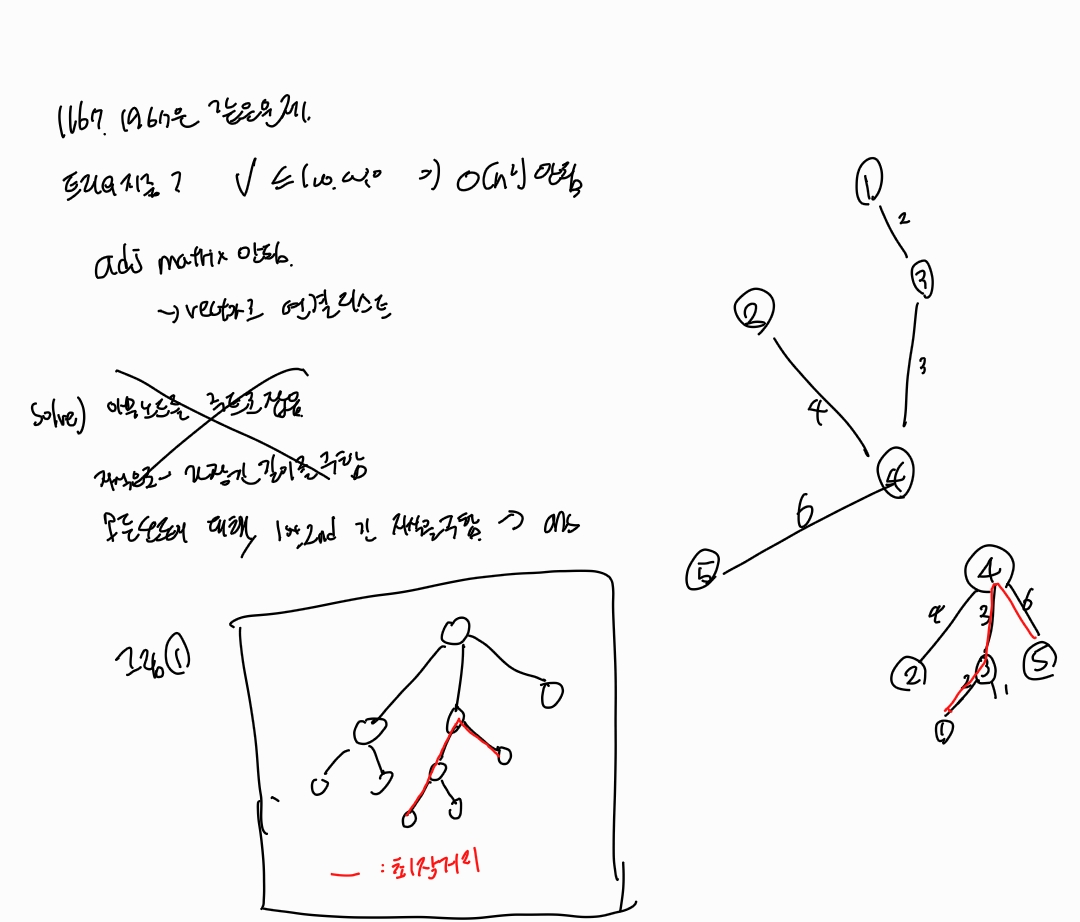 1167, 1967은 같은문제.
트리의 지름?
V ≤ 100,000 => O(n²) 안됨
adj matrix 안됨.
→ vector로 연결리스트
solve)
가장 긴 길이를 구함
모든노드에 대해, 1st, 2nd 긴 자식을 구함. → ans
그림①
— : 최장거리
1
2
3
2
3
4
4
6
5
4
4
3
6
2
3
5
2
1
1